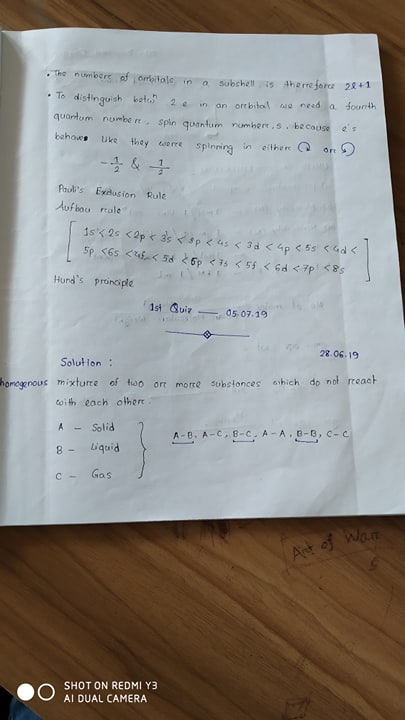 • The numbers of orbitals in a subshell is therefore 2l+1
• To distinguish betwn 2 e in an orbital we need a fourth
quantum number, spin quantum number, s, because e's
behave like they were spinning in either ↻ or ↺
-1/2 & 1/2
Pauli's Exclusion Rule
Aufbau rule
[ 1s < 2s < 2p < 3s < 3p < 4s < 3d < 4p < 5s < 4d <
5p < 6s < 4f < 5d < 6p < 7s < 5f < 6d < 7p < 8s ]
Hund's principle
1st Quiz — 05.07.19
28.06.19
Solution :
homogenous mixture of two or more substances which do not react
with each other.
A - Solid
B - Liquid
C - Gas
A-B, A-C, B-C, A-A, B-B, C-C
Art of War
SHOT ON REDMI Y3
AI DUAL CAMERA